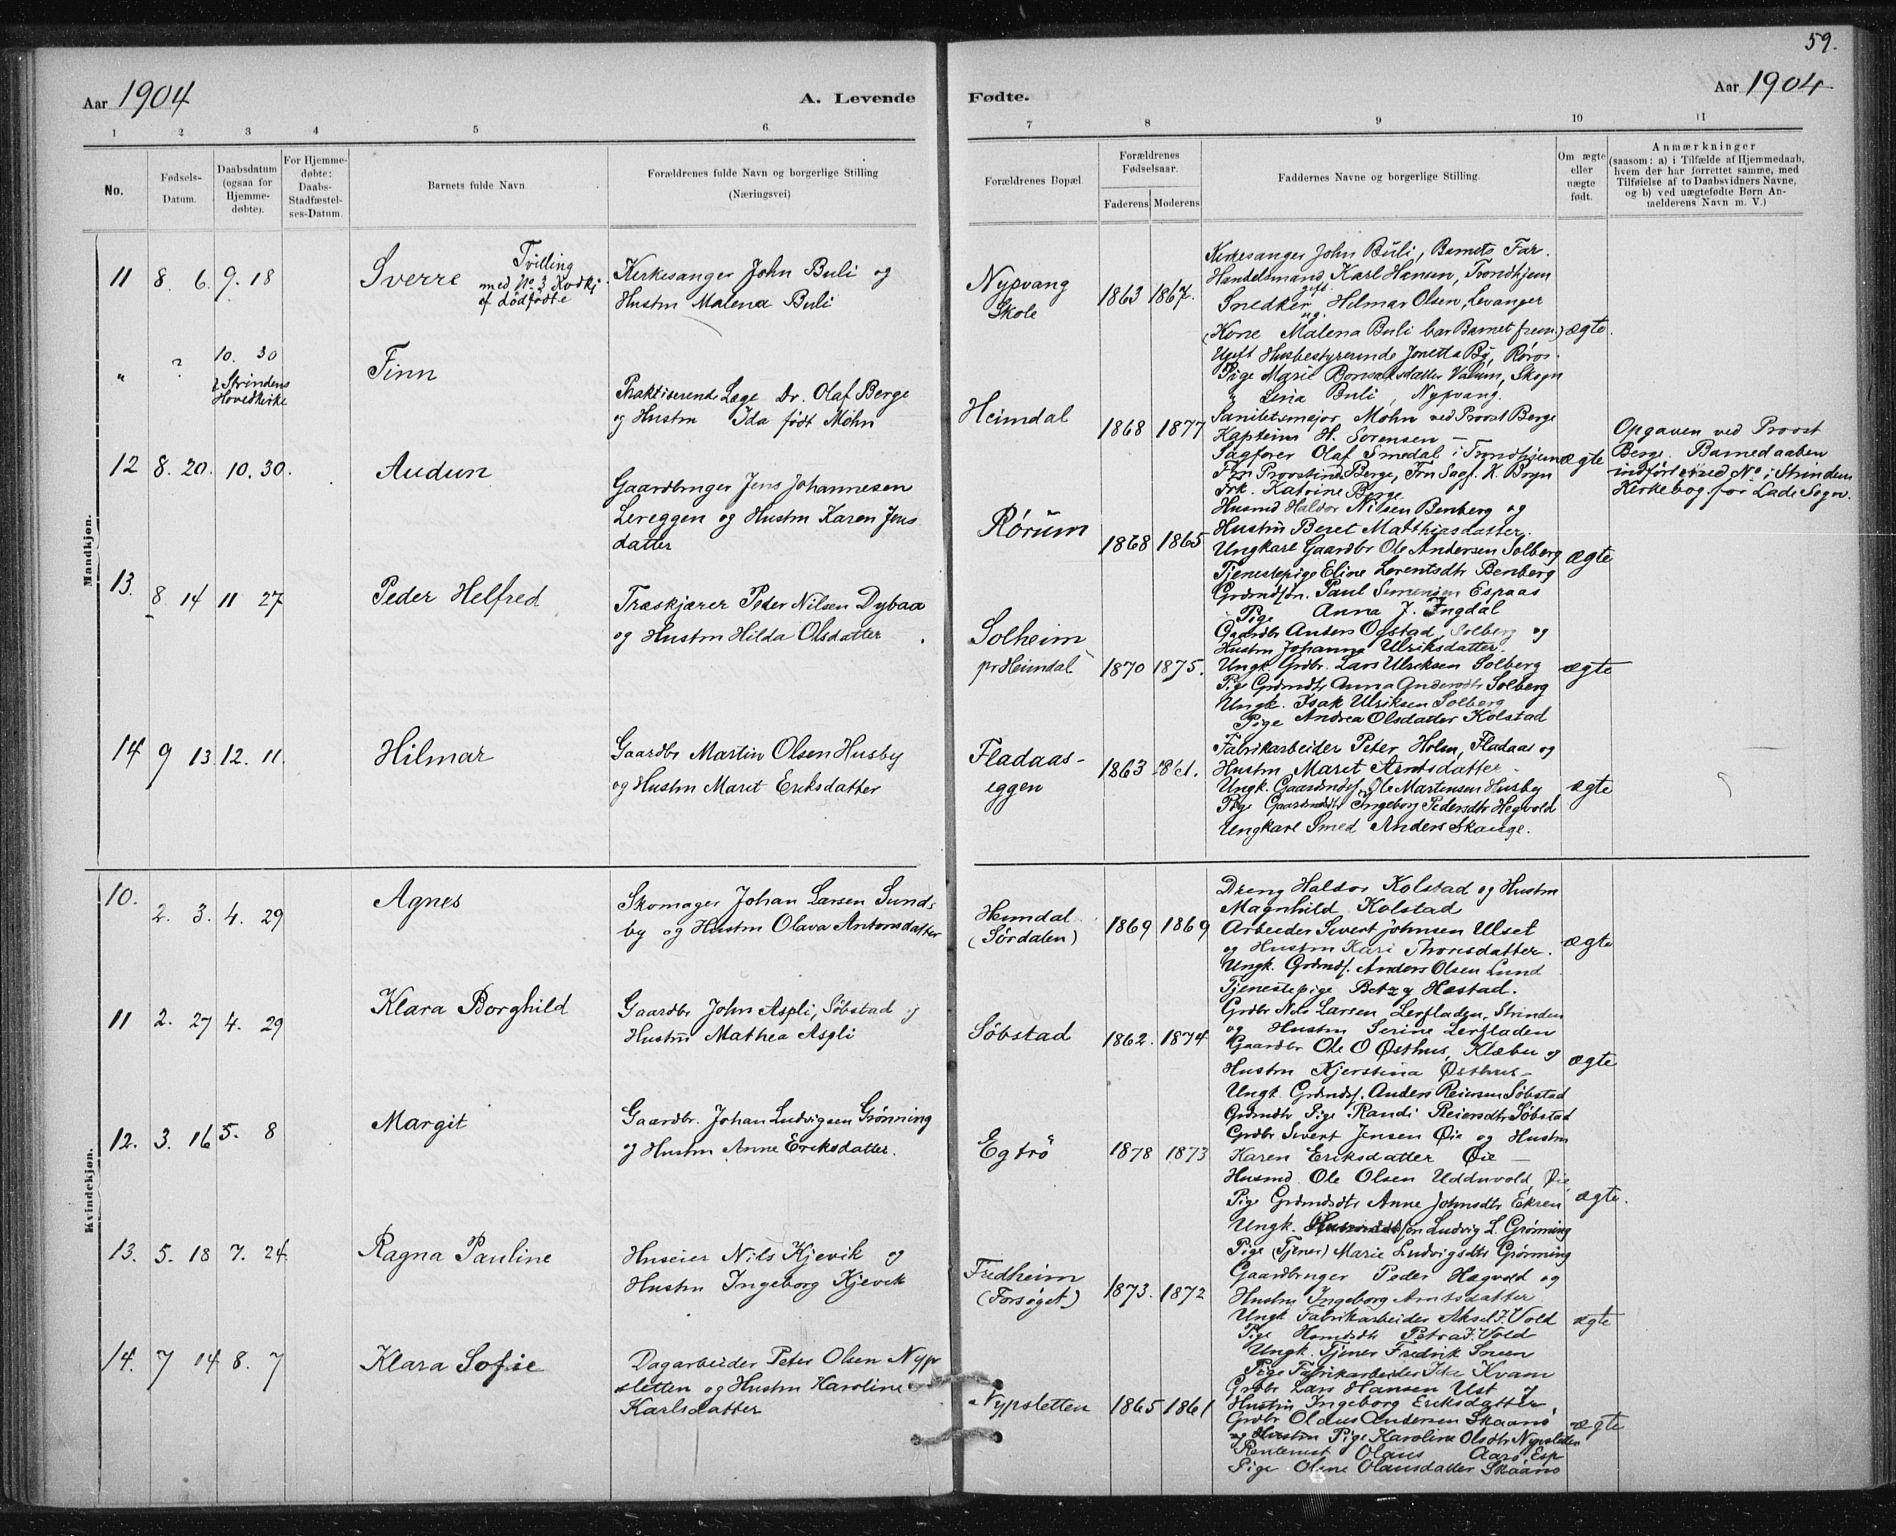 59.
Aar 1904
A. Levende
Fødte.
Aar 1904
1 2 3 4 5 6
7 8 9 10 11
No.
Fødsels-Datum.
Daabsdatum (ogsaa for Hjemme-døbte).
For Hjemme-døbte: Daabs-Stadfæstel-ses-Datum.
Barnets fulde Navn
Forældrenes fulde Navn og borgerlige Stilling
(Næringsvei)
Forældrenes Bopæl.
Forældrenes Fødselsaar.
Faderens Moderens
Faddernes Navne og borgerlige Stilling.
Om ægte eller uægte født.
Anmærkninger
(saasom: a) i Tilfælde af Hjemmedaab,
hvem der har forrettet samme, med
Tilføielse af to Daabsvidners Navne,
og b) ved uægtefødte Børn An-
melderens Navn m. V.)
Mandkjøn.
11 8. 6. 9. 18
Sverre
Tvilling
med No 3 Kvdkj
af dødfødte
Kirkesanger John Buli og
Hustru Malena Buli
Nypvang
Skole
1863 1867.
Kirkesanger John Buli, Barnets Far.
Handelsmand Karl Hansen, Trondhjem
gift
Snedker Hilmar Olsen, Levanger
ug.
(Kone Malena Buli bar Barnet frem)
Ugift Husbestyrerinde Jonetta Bý, Røros
Pige Marie Bonsaksdatter Valum, Skogn
" Lina Buli, Nypvang.
ægte.
" ? 10. 30
i Strindens
Hovedkirke
Finn
Praktiserende Læge Dr. Olaf Berge
og Hustru Ida født Mohn
Heimdal
1868 1877
Sanitetsmajor Mohn ved Provst Berge
Kaptein H. Sørensen —
Sagfører Olaf Smedal i Trondhjem
Fru Provstinde Berge, Fru Sagf. K. Bryn
Frk. Katrine Berge
ægte
Opgaven ved Provst
Berge. Barnedaaben
indført med No i Strinden
Kirkebog for Lade Sogn.
12 8. 20. 10. 30.
Audun
Gaardbruger Jens Johannesen
Lereggen og Hustru Karen Jens
datter
Rørum
1868 1865
Husmd Haldor Nilsen Benberg og
Hustru Beret Matthiasdatter
Ungkarl Gaardbr Ole Andersen Solberg
Tjenestepige Eline Lorentsdtr Benberg
Grdmdsøn. Paul Simensen Espaas
Pige Anna J. Engdal
ægte
13. 8 14 11 27
Peder Helfred
Træskjærer Peter Nilsen Dybaa
og Hustru Hilda Olsdatter
Solheim
pr Heimdal
1870 1875.
Gaardbr Anders Ogstad, Solberg og
Hustru Johanna Ulriksdatter
Ungk. Grdbr. Lars Ulriksen Solberg
Pige Grdmdtr Anna Andersdtr Solberg
Ungk. Isak Ulriksen Solberg
Pige Andrea Olsdatter Kolstad
ægte
14 9 13 12. 11.
Hilmar
Gaardbr Martin Olsen Husby
og Hustru Marit Eriksdatter
Fladaas-
eggen
1863
Fabrikarbeider Peter Holm, Fladaas og
Hustru Maret Arntsdatter
Ungk. Gaardmdsf. Ole Martensen Husby
Pige Gaardmdtr Ingeborg Pedersdtr Hegvold
Ungkarl Smed Anders Skauge.
ægte
Kvindekjøn.
10. 2. 3. 4. 29
Agnes
Skomager Johan Larsen Sund-
by og Hustru Olava Antonsdatter
Heimdal
(Sørdalen)
1869 1869
Dreng Haldor Kolstad og Hustru
Magnhild Kolstad
Arbeider Sivert Johnsen Ulset
og Hustru Kari Thonsdatter.
Ungk. Grdmdsf. Anders Olsen Lund
Tjenestepige Betzy Hastad.
ægte
11 2. 27 4. 29
Klara Borghild
Gaardbr John Aspli, Søbstad og
Hustru Mathea Aspli
Søbstad
1862. 1874
Grdbr Nels Larsen Lerfladen, Strinden
og Hustru Serine Lerfladen
Gaardbr Ole O Østhus, Klæbu og
Hustru Kjerstina Østhus
Ungk Grdmdsf. Anders Reiersen Søbstad
Grdmdtr Pige Randi Reiersdtr Søbstad
ægte
12. 3. 16 5. 8
Margit
Gaardbr. Johan Ludvigsen Grønning
og Hustru Anne Eriksdatter.
Egtrø
1878 1873
Grdbr Sivert Jensen Øie og Hustru
Karen Eriksdatter Øie —
Husmd Ole Olsen Udduvold, Øie
Pige Grdmdsdtr Anne Johnsdtr Ekren
Ungk. søn Ludvig L. Grønning
Pige (Tjener) Marie Ludvigsdtr Grønning
ægte.
13. 5. 18 7. 24
Ragna Pauline
Huseier Nils Kjevik og
Hustru Ingeborg Kjevik
Fredheim
(Forsøget)
1873. 1872
Gaardbruger Peder Hegvold og
Hustru Ingeborg Arntsdatter
Ungk Fabrikarbeider Aksel J. Vold
Pige Petra J. Vold
Ungk. Tjener Fredrik Soren
Pige Fabrikarbeider Ida Kvam
ægte
14. 7 14 8. 7
Klara Sofie
Dagarbeider Peter Olsen Nyp
sletten og Hustru Karoline
Karlsdatter
Nypsletten
1865 1861
Grdbr Lars Hansen Ust og
Hustru Ingeborg Eriksdatter,
Grdbr Olaus Andersen Skaanø
og Hustru Pige Karoline Olsdtr Nypsletten
Rentenist Olaus Aarø, Esp
Pige Oline Olausdatter Skaanø
ægte